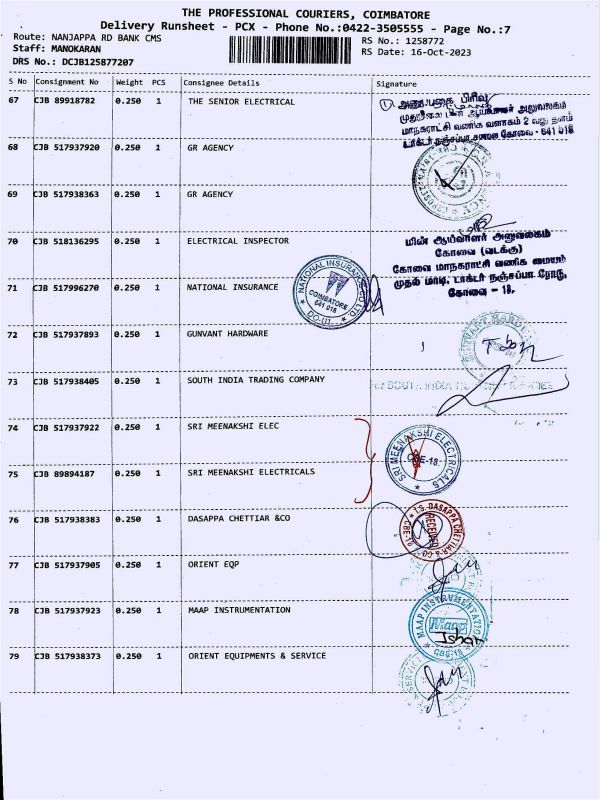 THE PROFESSIONAL COURIERS, COIMBATORE
Delivery Runsheet - PCX - Phone No.:0422-3505555 - Page No.:7
Route: NANJAPPA RD BANK CMS
RS No.: 1258772
Staff: MANOKARAN
RS Date: 16-Oct-2023
DRS No.: DCJB125877207
S No Consignment No Weight PCS Consignee Details Signature
67 CJB 89918782 0.250 1 THE SENIOR ELECTRICAL
மாநகராட்சி வணிக வளாகம் 2 வது தளம்
டாக்டர் நஞ்சப்பா சாலை கோவை - 641 018
68 CJB 517937920 0.250 1 GR AGENCY
69 CJB 517938363 0.250 1 GR AGENCY
70 CJB 518136295 0.250 1 ELECTRICAL INSPECTOR
மின் ஆய்வாளர் அலுவலகம்
கோவை (வடக்கு)
கோவை மாநகராட்சி வணிக மையம்
முதல் மாடி, டாக்டர் நஞ்சப்பா ரோடு,
கோவை - 18.
71 CJB 517996270 0.250 1 NATIONAL INSURANCE
NATIONAL INSURANCE CO LTD.
COIMBATORE
641 018
72 CJB 517937893 0.250 1 GUNVANT HARDWARE
73 CJB 517938405 0.250 1 SOUTH INDIA TRADING COMPANY
74 CJB 517937922 0.250 1 SRI MEENAKSHI ELEC
SRI MEENAKSHI ELECTRICALS
CBE-18.
75 CJB 89894187 0.250 1 SRI MEENAKSHI ELECTRICALS
76 CJB 517938383 0.250 1 DASAPPA CHETTIAR &CO
T.S. DASAPPA CHETTIAR & CO
RECEIVED
77 CJB 517937905 0.250 1 ORIENT EQP
78 CJB 517937923 0.250 1 MAAP INSTRUMENTATION
MAAP INSTRUMENTATION
Maap
CBE-18
79 CJB 517938373 0.250 1 ORIENT EQUIPMENTS & SERVICE